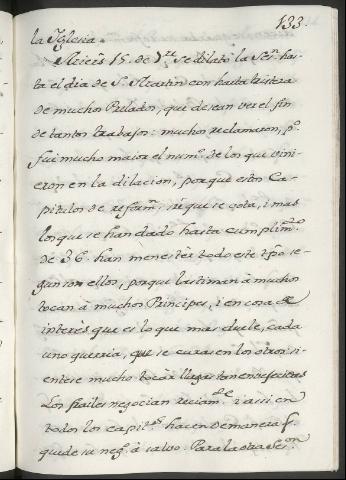 133.
la Iglesia.
Miercs. 15. de 7re. se dilató la Ses.n has-
ta el dia de S. Martin con harta tristeza
de muchos Prelados, que desean ver el fin
de tantos trabajos: muchos reclamaron, p.o
fue mucho maior el num.o de los que vini-
eron en la dilacion, porque estos Ca-
pitulos de reform.n ni que se cota, i mas
los que se han dado hasta cumplim.to
de 36. han menester todo este tpo. se-
gun son ellos, porque lastiman à muchos
tocan à muchos Principes, i en cosa de
interés que es lo que mas duele, cada
uno querria, que se curasen los otros: si-
entese mucho tocar llagas tan envejecidas
Los frailes negocian reciam.te i assi en
todos los capit.os hacen de manera q.
quede su neg.o à salvo. Para la otra Ses.on